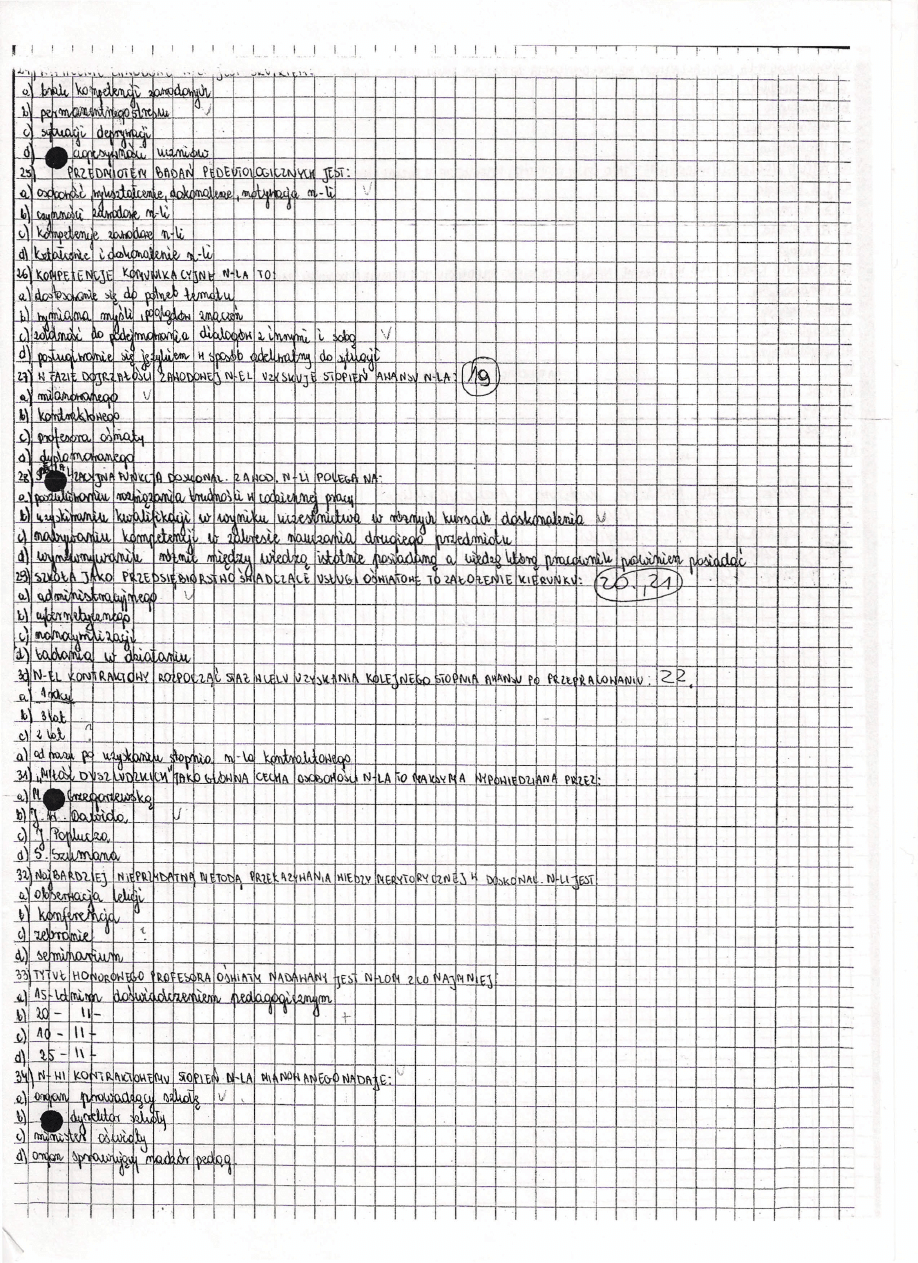 a) brak kompetencji zawodowych
b) permanentnego stresu
c) sytuacji deprywacji
d) agresywności uczniów
25) PRZEDMIOTEM BADAŃ PEDEUTOLOGICZNYCH JEST:
a) osobowość, wykształcenie, dokonalenie, motywacja n-li
b) czynności zawodowe n-li
c) kompetencje zawodowe n-li
d) kształcenie i doskonalenie n-li
26) KOMPETENCJE KOMUNIKACYJNE N-LA TO:
a) dostosowanie się do potrzeb tematu
b) wymiana myśli, poglądów znaczeń
c) zdolność do podejmowania dialogów z innymi i sobą
d) posługiwanie się językiem w sposób adekwatny do sytuacji
27) W FAZIE DOJRZAŁOŚCI ZAWODOWEJ N-EL UZYSKUJE STOPIEŃ AWANSU N-LA: 19
a) mianowanego
b) kontraktowego
c) profesora oświaty
d) dyplomowanego
28) FUNKCJA DOSKONAL. ZAWOD. N-LI POLEGA NA:
a) poszukiwaniu rozwiązania trudności w codziennej pracy
b) uzyskiwaniu kwalifikacji w wyniku uczestnictwa w różnych kursach doskonalenia
c) nabywaniu kompetencji w zakresie nauczania drugiego przedmiotu
d) wyrównywaniu różnic między wiedzą istotnie posiadaną a wiedzą którą pracownik powinien posiadać
29) SZKOŁA JAKO PRZEDSIĘBIORSTWO ŚWIADCZĄCE USŁUGI OŚWIATOWE TO ZAŁOŻENIE KIERUNKU: 20, 21
a) administracyjnego
b) cybernetycznego
c)
d) badania w działaniu
30) N-EL KONTRAKTOWY ROZPOCZĄĆ STAŻ W CELU UZYSKANIA KOLEJNEGO STOPNIA AWANSU PO PRZEPRACOWANIU: 22.
a) 1 roku
b) 3 lat
c) 2 lat ?
d) od razu po uzyskaniu stopnia n-la kontraktowego
31) "MIŁOŚĆ DUSZ LUDZKICH" JAKO GŁÓWNA CECHA OSOBOWOŚCI N-LA TO MAKSYMA WYPOWIEDZIANA PRZEZ:
a) M. Grzegorzewską
b) J. W. Dawida
c) J. Poplucza
d) S. Szumana
32) NAJBARDZIEJ NIEPRZYDATNĄ METODĄ PRZEKAZYWANIA WIEDZY MERYTORYCZNEJ W DOSKONAL. N-LI JEST:
a) obserwacja lekcji
b) konferencja
c) zebranie ?
d) seminarium
33) TYTUŁ HONOROWEGO PROFESORA OŚWIATY NADAWANY JEST N-LOM Z CO NAJMNIEJ:
a) 15-letnim doświadczeniem pedagogicznym
b) 20 - II -
c) 10 - II -
d) 25 - II -
34) N-WI KONTRAKTOWEMU STOPIEŃ N-LA MIANOWANEGO NADAJE:
a) organ prowadzący szkołę
b) dyrektor szkoły
c) minister oświaty
d) organ sprawujący nadzór pedag.